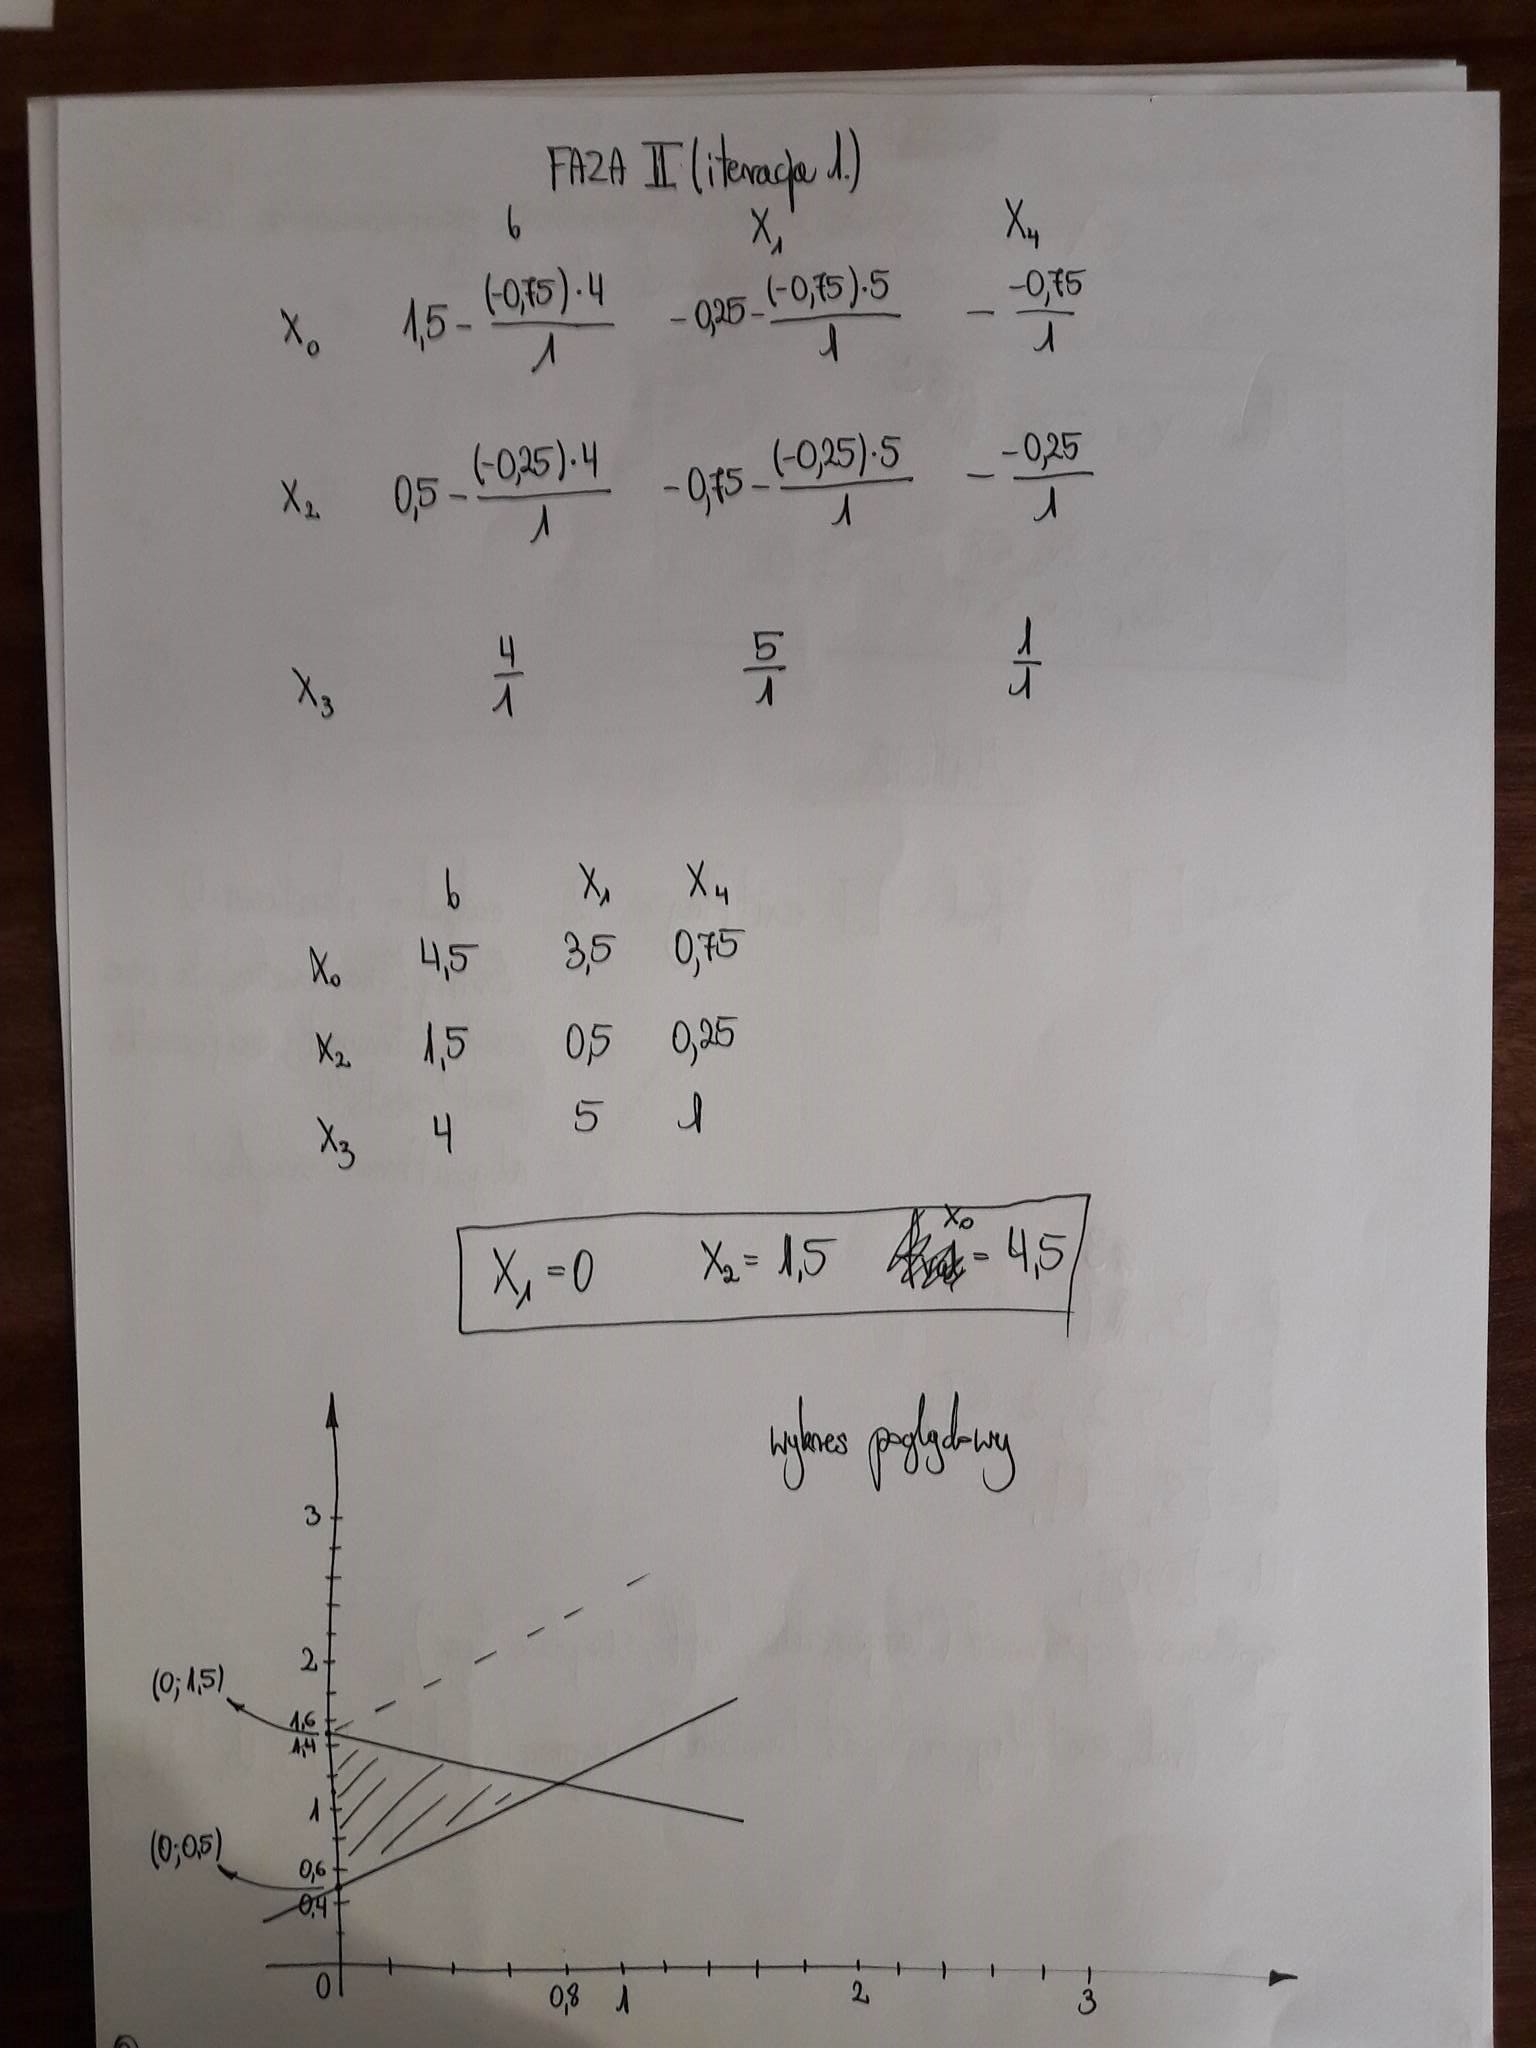 FAZA II (iteracja 1.)
b X₁ X₄
X₀ 1,5 - (-0,75)·4/1 -0,25 - (-0,75)·5/1 - -0,75/1
X₂ 0,5 - (-0,25)·4/1 -0,75 - (-0,25)·5/1 - -0,25/1
X₃ 4/1 5/1 1/1
b X₁ X₄
X₀ 4,5 3,5 0,75
X₂ 1,5 0,5 0,25
X₃ 4 5 1
X₁ = 0 X₂ = 1,5 X₀ = 4,5
wykres poglądowy
3
2
(0; 1,5)
1,6
1,4
1
(0; 0,5)
0,6
0,4
0 0,8 1 2 3